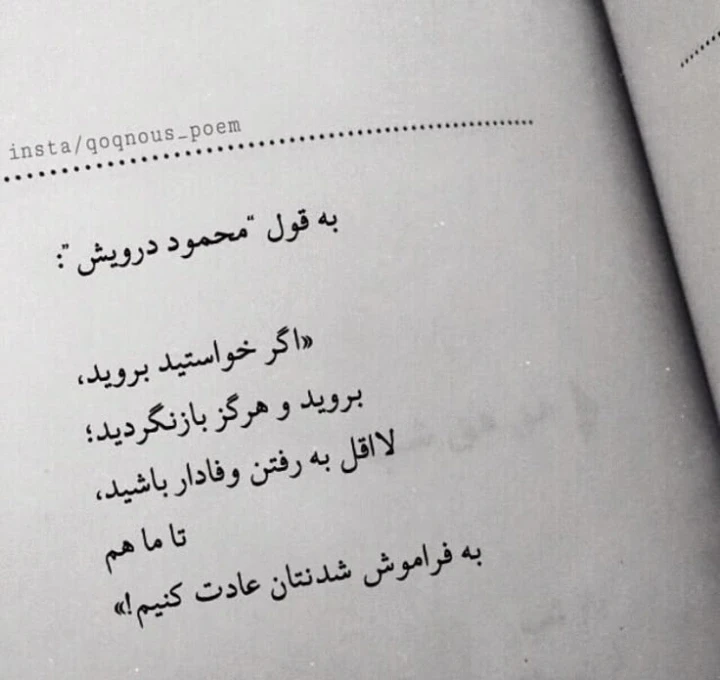 insta/qoqnous_poem
به قول "محمود درویش":
«اگر خواستید بروید،
بروید و هرگز بازنگردید؛
لااقل به رفتن وفادار باشید،
تا ما هم
به فراموش شدنتان عادت کنیم!»